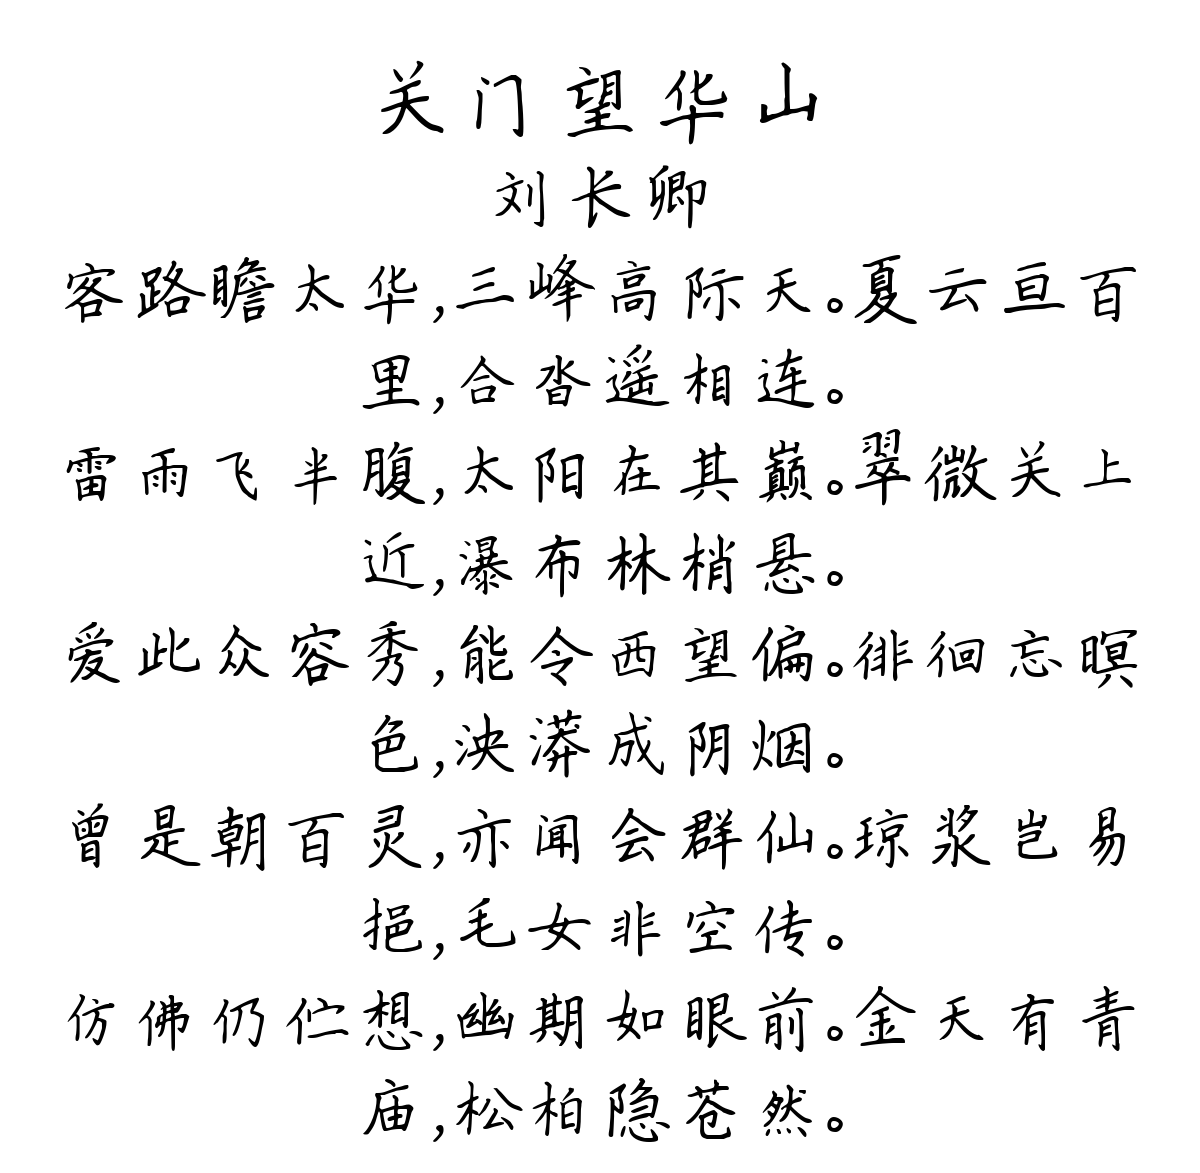 关门望华山
刘长卿
客路瞻太华,三峰高际天。夏云亘百
里,合沓遥相连。
雷雨飞半腹,太阳在其巅。翠微关上
近,瀑布林梢悬。
爱此众容秀,能令西望偏。徘徊忘暝
色,泱漭成阴烟。
曾是朝百灵,亦闻会群仙。琼浆岂易
挹,毛女非空传。
仿佛仍伫想,幽期如眼前。金天有青
庙,松柏隐苍然。